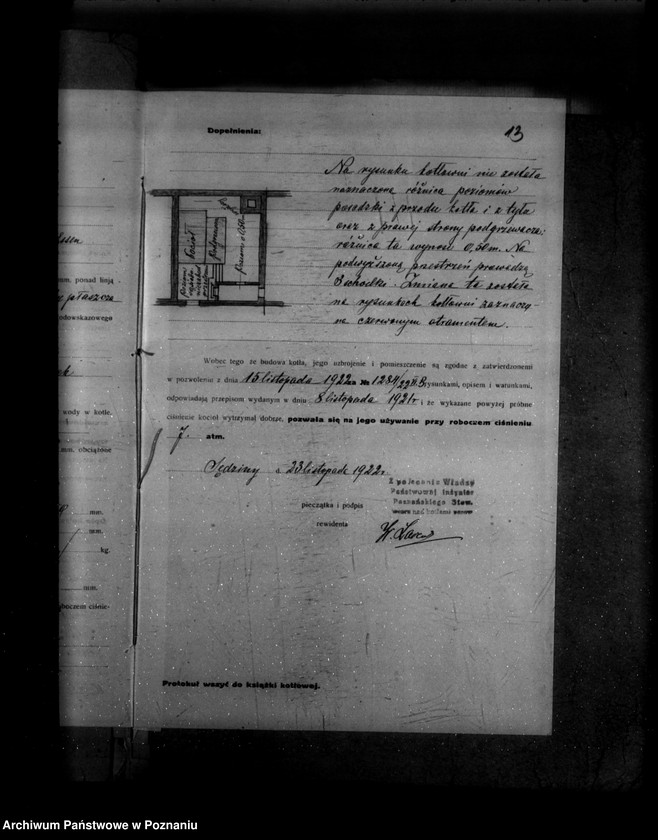 13
Dopełnienia:
Na rysunku kotłowni nie została
naznaczona różnica poziomów
posadzki z przodu kotła i z tyłu
oraz z prawej strony podgrzewacza;
różnica ta wynosi 0,50m. Na
podwyższoną przestrzeń prowadzą
3 schodki. Zmiana ta została
na rysunkach kotłowni zaznaczo-
na czerwonym atramentem.
Kocioł
poziom 0,50m
lossa
mm. ponad linją
płaszcza
odowskazowego
wody w kotle,
mm. obciążone
mm.
mm.
kg.
mm.
oboczem ciśnie-
Wobec tego że budowa kotła, jego uzbrojenie i pomieszczenie są zgodne z zatwierdzonemi
w pozwoleniu z dnia 15 listopada 1922 za № 1284/22 rysunkami, opisem i warunkami,
odpowiadają przepisom wydanym w dniu 8 listopada 1921r i że wykazane powyżej próbne
ciśnienie kocioł wytrzymał dobrze, pozwala się na jego używanie przy roboczem ciśnieniu
7. atm.
Sędziny d 23 listopada 1922r
pieczątka i podpis
rewidenta
Z polecenia Władzy
Państwowej Inżynier
Poznańskiego Stow.
Protokuł wszyć do książki kotłowej.
Archiwum Państwowe w Poznaniu